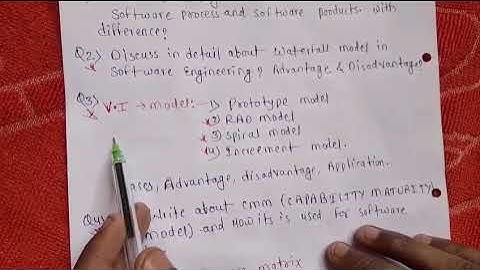 Software process and software products. with
difference?
Q2) Discuss in detail about Waterfall model in
Software Engineering? Advantage & Disadvantages?
Q3) V.I → model:- 1) Prototype model
2) RAD model
3) Spiral model
4) Increement model.
ases, Advantage, disadvantage, Application.
Write about cmm (CAPABILITY MATURITY
model) and how its is used for software
matrix